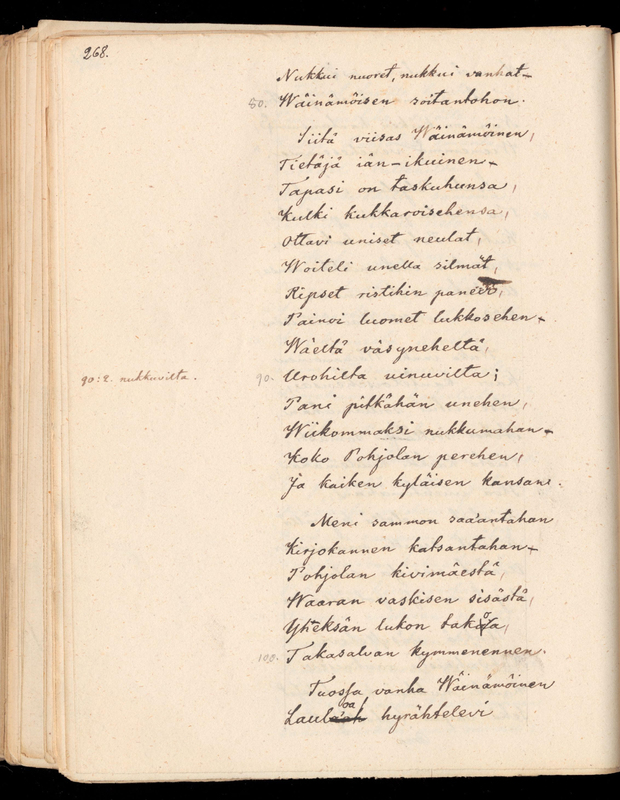 268.
Nukkui nuoret, nukkui vanhat
80. Wäinämöisen soitantohon.
Siitä viisas Wäinämöinen,
Tietäjä iän-ikuinen
Tapasi on taskuhunsa,
Kulki kukkaroisehensa,
Ottavi uniset neulat,
Woiteli unella silmät,
Ripset ristihin
Painoi luomet lukkosehen
Wäeltä väsyneheltä,
90:2. nukkuvilta. 90. Urohilta uinuvilta;
Pani pitkähän unehen,
Wiikommaksi nukkumahan
Koko Pohjolan perehen,
Ja kaiken kyläisen kansan.
Meni sammon saa'antahan
Kirjokannen katsantahan
Pohjolan kivimäestä,
Waaran vaskisen sisästä,
Yheksän lukon
100. Takasalvan kymmenennen.
Tuossa vanha Wäinämöinen
hyrähtelevi